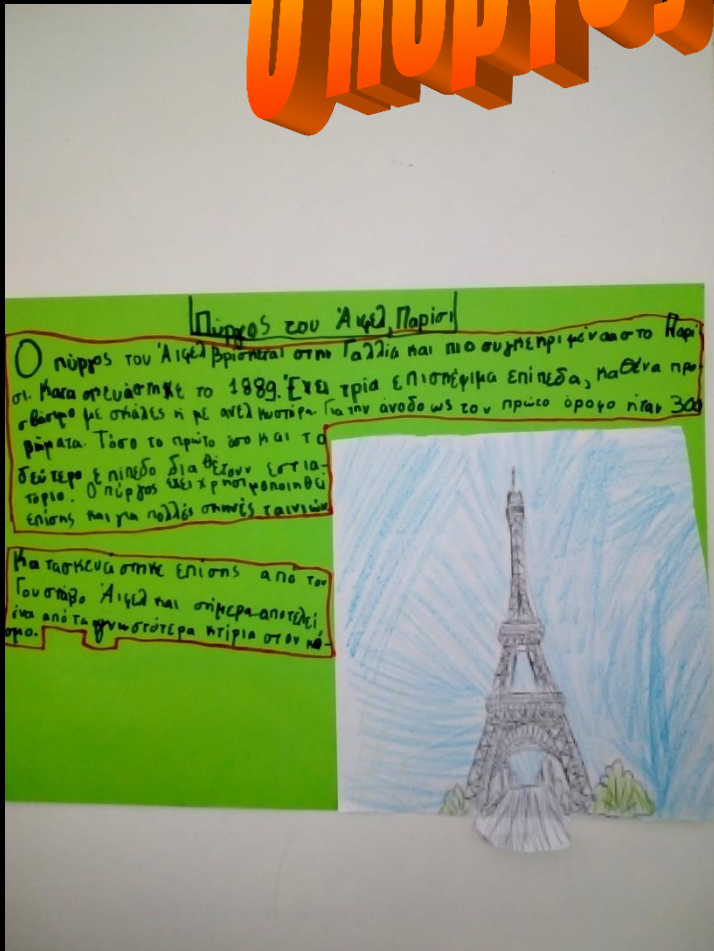 Ο πύργος
Πύργος του Άιφελ, Παρίσι
Ο πύργος του Άιφελ βρίσκεται στην Γαλλία και πιο συγκεκριμένα στο Παρί-
σι. Κατασκευάστηκε το 1889. Έχει τρία επισκέψιμα επίπεδα, καθένα προ-
σβάσιμο με σκάλες ή με ανελκυστήρα. Για την άνοδο ως τον πρώτο όροφο ήταν 300
βήματα. Τόσο το πρώτο όσο και το
δεύτερο επίπεδο διαθέτουν εστια-
τόριο. Ο πύργος έχει χρησιμοποιηθεί
επίσης και για πολλές σκηνές ταινιών
Κατασκευαστηκε επίσης από τον
Γουστάβο Άιφελ και σήμερα αποτελεί
ένα από τα γνωστότερα κτίρια στον κό-
σμο.